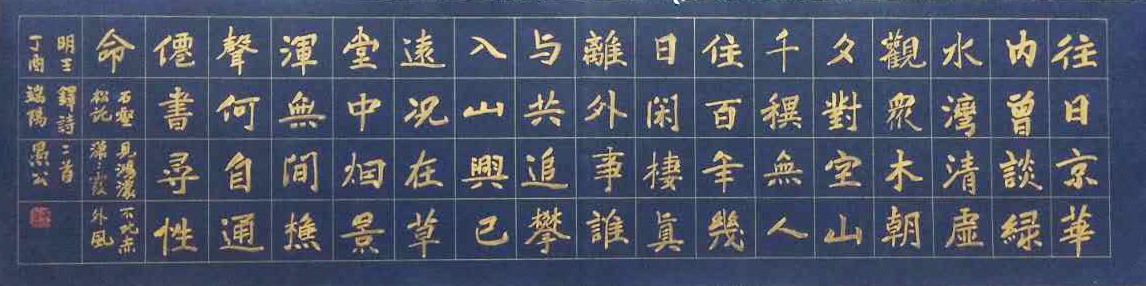 往日京華
内曾談緑
水灣清虛
觀衆木朝
夕對空山
千禩無人
住百年幾
日閑棲真
離外事誰
与共追攀
入山興已
遠况在草
堂中烟景
渾無間樵
聲何自通
僊書尋性
命
石壑見鴻濛不
赤
松
霞外風
明王鐸詩二首
丁酉端陽愚公